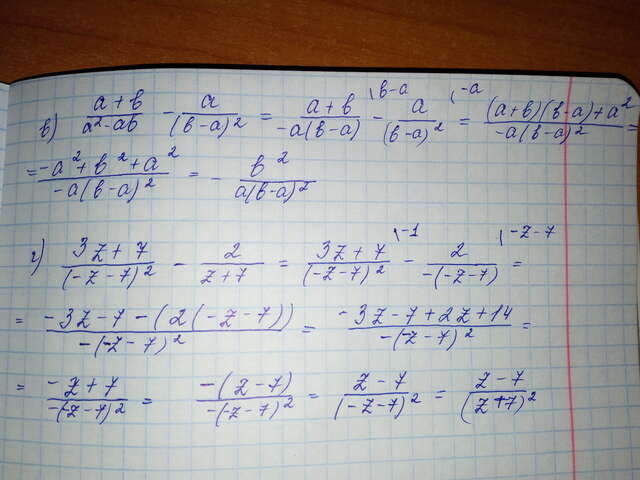 в) (a+b)/(a²-ab) - a/(b-a)² = (a+b)/(-a(b-a)) \b-a - a/(b-a)² \-a = ((a+b)(b-a)+a²)/(-a(b-a)²) =
= (-a²+b²+a²)/(-a(b-a)²) = - b²/(a(b-a)²)
г) (3z+7)/(-z-7)² - 2/(z+7) = (3z+7)/(-z-7)² \-1 - 2/(-(-z-7)) \-z-7 =
= (-3z-7-(2(-z-7)))/(-(-z-7)²) = (-3z-7+2z+14)/(-(-z-7)²) =
= (-z+7)/(-(-z-7)²) = (-(z-7))/(-(-z-7)²) = (z-7)/(-z-7)² = (z-7)/(z+7)²